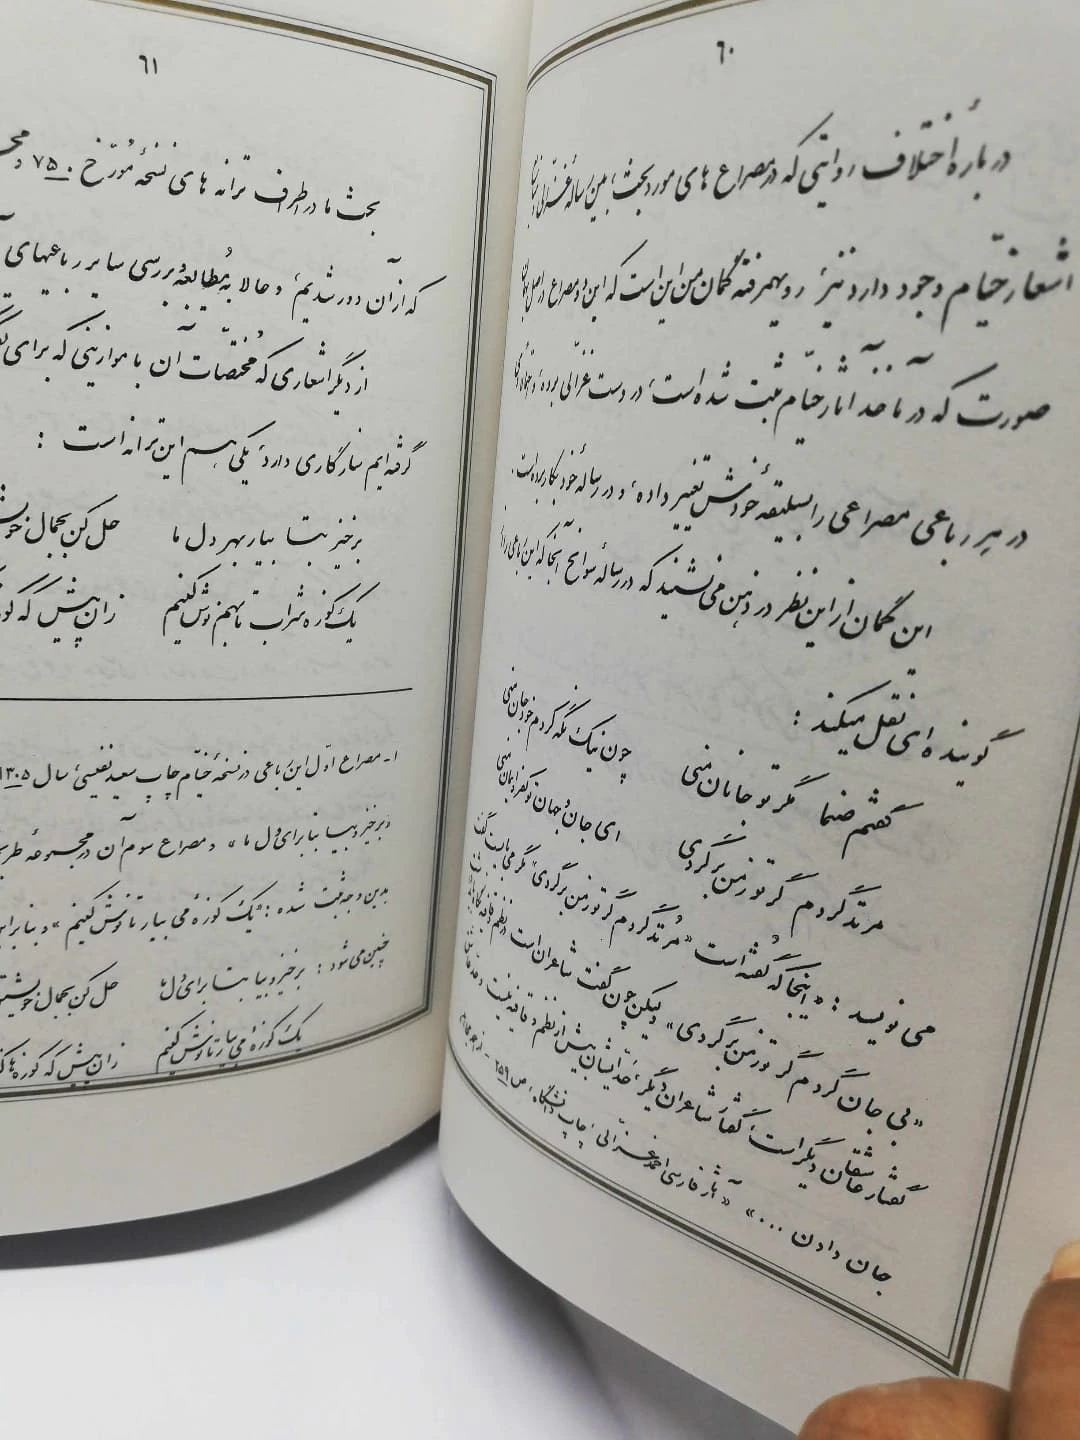 ٦٠
دربارهٔ اختلاف روایتی که در مصراع های مورد بحث، بین رسالهٔ غزّالی و
اشعار خیّام وجود دارد نیز، رویهمرفته گمان من این است که این دو مصراع در اصل
صورت که در مآخذ آثار خیّام ثبت شده است، در دست غزّالی بوده، و
در هر رباعی مصراعی را بسلیقهٔ خودش تغییر داده، و در رسالهٔ خود بکار برده است.
این گمان از این نظر در ذهن می نشیند که در رسالهٔ سوانح آنجا که این رباعی را از
گوینده ای نقل میکند :
گفتم صنما مگر تو جانان منی چون نیک نگه کردم خود جان منی
مرتد گردم گر تو ز من برگردی ای جان و جهان تو کفر و ایمان منی
می نویسد : «اینجا که گفته است «مُرتد گردم گر تو ز من برگردی» مگر می بایست گفت
«بی جان گردم گر تو ز من برگردی» ولیکن چون گفت شاعران است در نظم و قافیه
گفتار عاشقان دیگر است، و گفتار شاعران دیگر، حدّ ایشان بیش از نظم و قافیه نیست و حدّ عاشق
جان دادن ...» «آثار فارسی احمد غزّالی، چاپ دانشگاه، ص ٢٥٩ –
٦١
بحث ما در اطراف ترانه های نسخهٔ مُورّخ ٧٥٠ و
که از آن دور شدیم، و حالا به مُطالعه و بررسی سایر رباعیهای
از دیگر اشعاری که مُختصّات آن با موازینی که برای
گرفته ایم سازگاری دارد، یکی هم این ترانه است :
برخیز بتا بیار بهر دل ما حل کن بجمال
یک کوزه شراب تا بهم نوش کنیم زان پیش که
١- مصراع اوّل این رباعی در نسخهٔ خیّام چاپ سعید نفیسی، سال ١٣٠٥
«برخیز و بیا بتا برای دل ما» و مصراع سوم آن در مجموعهٔ
بدین وجه ثبت شده : «یک کوزهٔ می بیار تا نوش کنیم» و
چنین می شود : برخیز و بیا بتا برای دل ما حل کن بجمال
یک کوزهٔ می بیار تا نوش کنیم زان پیش که کوزه ها